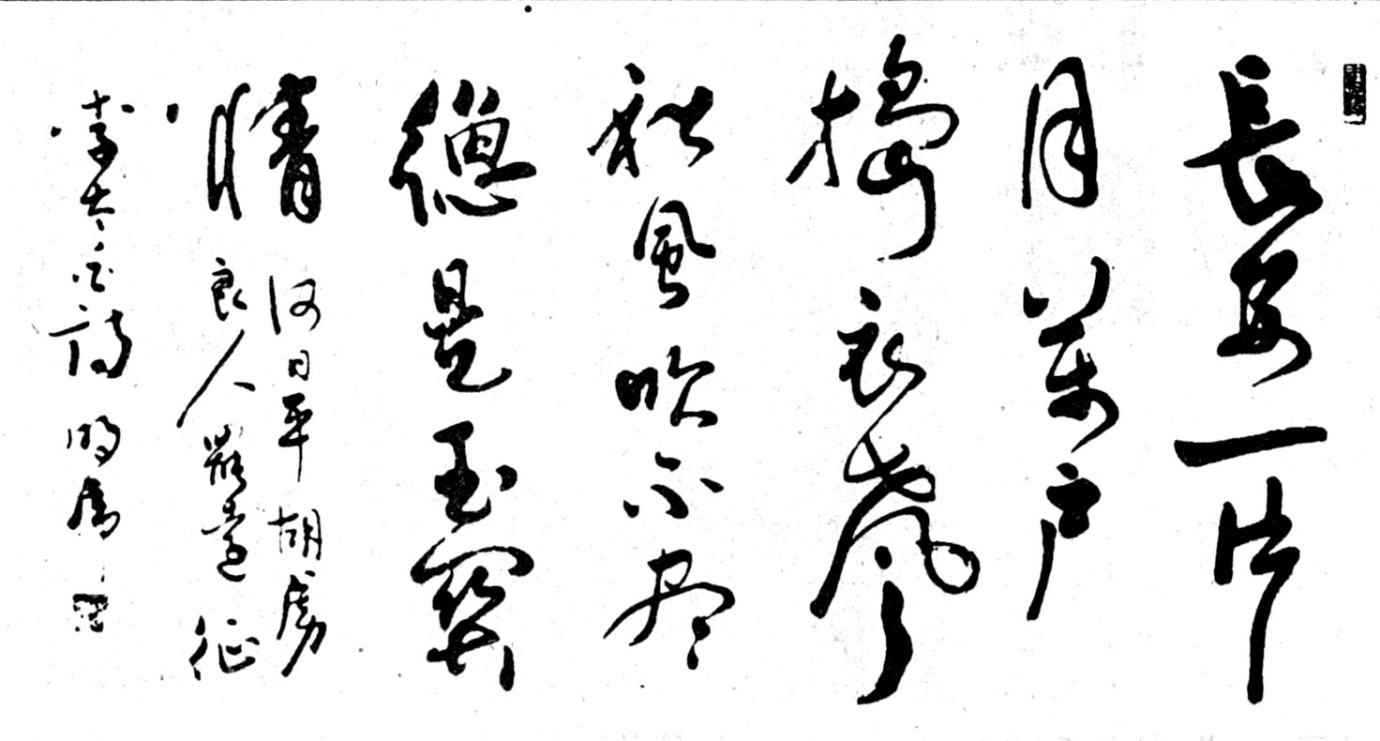 長安一片
月萬戶
擣衣聲
秋風吹不盡
總是玉關
情
何日平胡虜
良人罷遠征
李太白詩